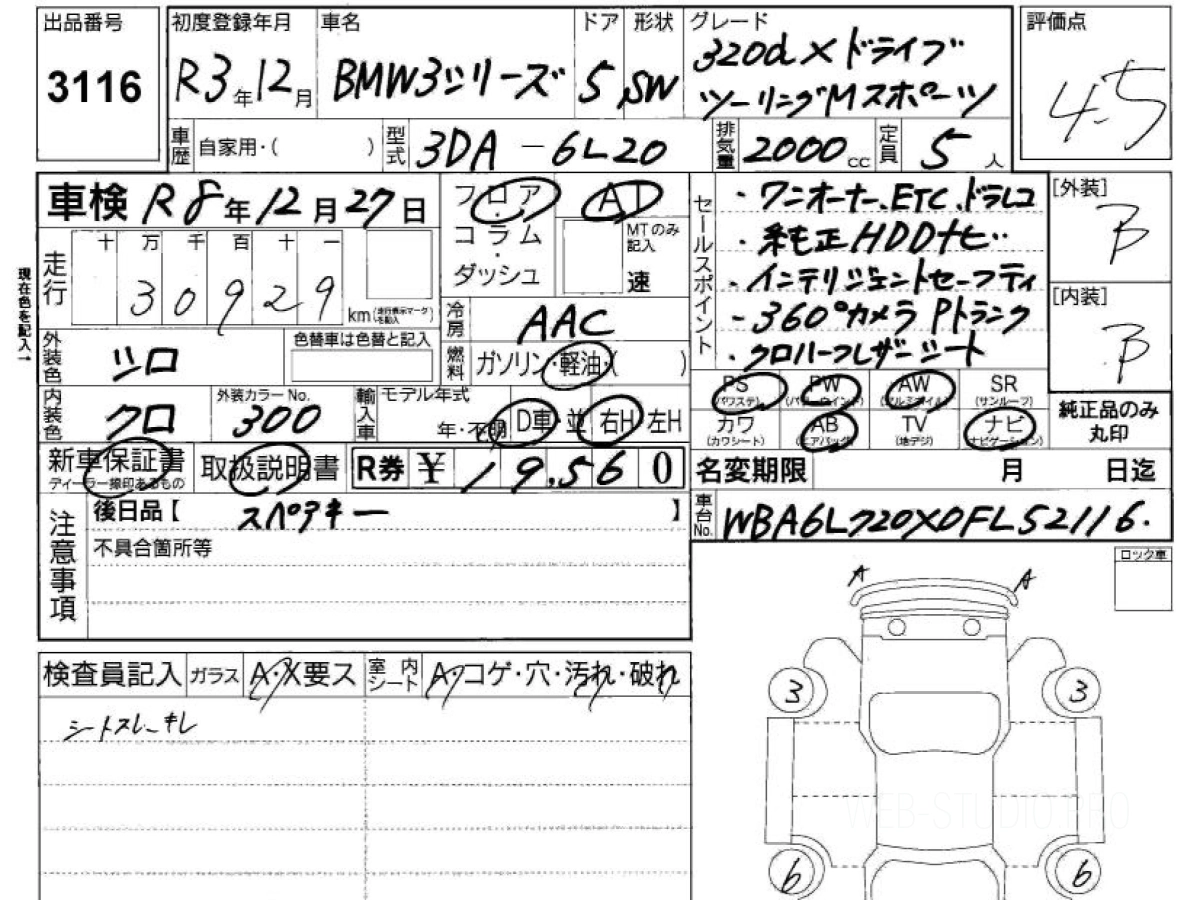 出品番号 初度登録年月 車名 ドア 形状 グレード 評価点
3116 R3年12月 BMW3シリーズ 5 SW 320d Xドライブ 4.5
ツーリングMスポーツ
車歴 自家用・( ) 型式 3DA-6L20 排気量 2000cc 定員 5人
車検 R8年12月27日 フロア AT セールスポイント ・ワンオーナー、ETC、ドラレコ [外装]
コラム MTのみ記入 ・純正HDDナビ B
走行 十万千百十一 ダッシュ 速 ・インテリジェントセーフティ
30929 km(走行表示マークを記入) 冷房 AAC ・360°カメラ Pトランク [内装]
現在色を記入→
外装色 シロ 色替車は色替と記入 燃料 ガソリン・軽油・( ) ・クロハーフレザーシート B
内装色 クロ 外装カラーNo. 300 輸入車 モデル年式 PS(パワステ) PW(パワーウインド) AW(アルミホイル) SR(サンルーフ) 純正品のみ丸印
年・不明 D車・並 右H・左H カワ(カワシート) AB(エアバック) TV(地デジ) ナビ(ナビゲーション)
新車保証書 取扱説明書 R券 ¥19,560 名変期限 月 日迄
ディーラー捺印あるもの
注意事項 後日品【 スペアキー 】 車台No. WBA6L720X0FL52116.
不具合箇所等 ロック車
A A
検査員記入 ガラス A・X要ス 室内シート A・コゲ・穴・汚れ・破れ
シートスレ・キレ 3 3
WEB-STUDIO.PRO
6 6